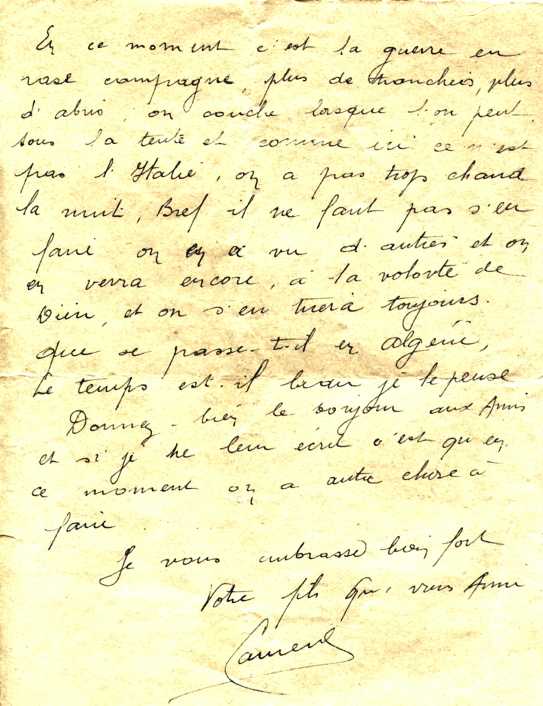 En ce moment c'est la guerre en
rase campagne, plus de trancheis, plus
d'abris, on couche lorsque l'on peut
sous la tente et comme ici ce n'est
pas l'Italie, on a pas trop chaud
la nuit, Bref il ne faut pas s'en
faire on en a vu d'autres et on
en verra encore, à la volonté de
Dieu, et on s'en tirera toujours.
Que se passe-t-il en Algérie,
Le temps est-il beau je le pense
Donnez-bien le bonjour aux Amis
et si je ne leur écrit c'est qu'en
ce moment on a autre chose à
faire
Je vous embrasse bien fort
Votre fils qui vous Aime